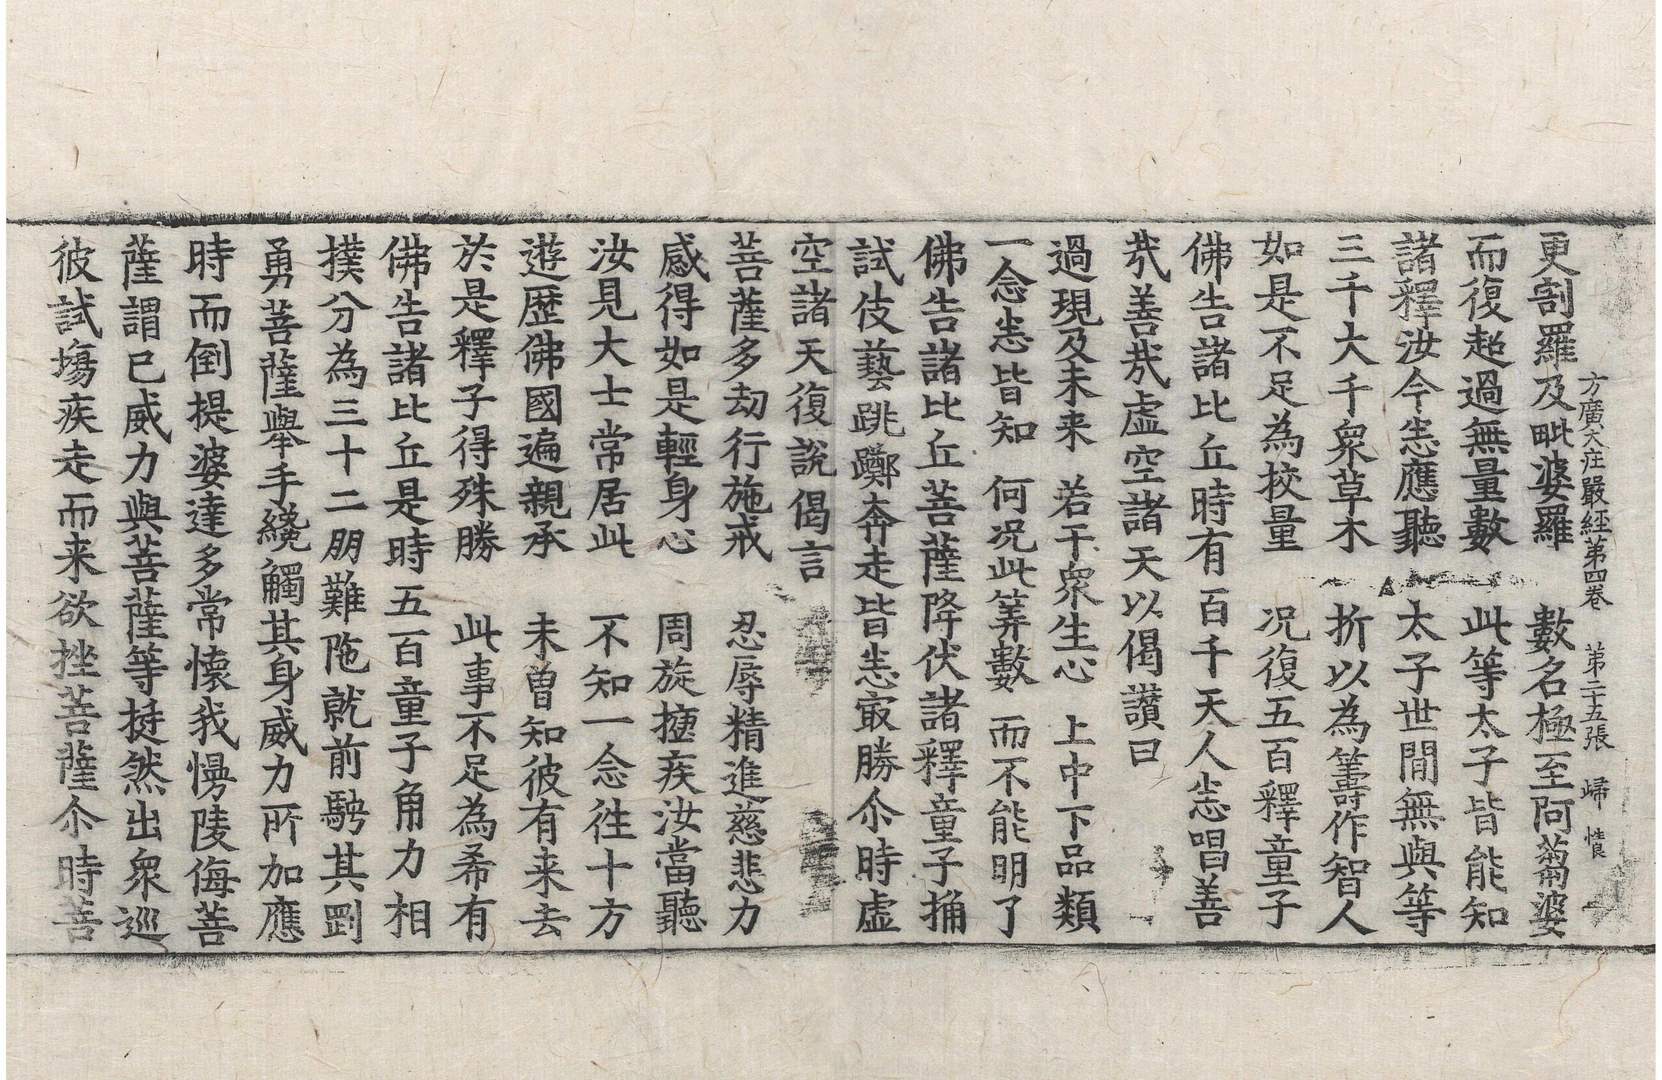 方廣大庄嚴經第四卷 第二十五張 歸 情
更割羅及毗婆羅 數名極至阿蒭婆
而復超過無量數 此等太子皆能知
諸釋汝今悉應聽 太子世間無與等
三千大千衆草木 折以為籌作智人
如是不足為挍量 況復五百釋童子
佛告諸比丘時有百千天人悉唱善
㢤善㢤虛空諸天以偈讚曰
過現及未来 若干衆生心 上中下品類
一念悉皆知 何況此筭數 而不能明了
佛告諸比丘菩薩降伏諸釋童子捔
試伎藝跳躑奔走皆悉㝡勝尒時虛
空諸天復說偈言
菩薩多劫行施戒 忍辱精進慈悲力
感得如是輕身心 周旋揵疾汝當聽
汝見大士常居此 不知一念徃十方
遊歷佛國遍親承 未曾知彼有来去
於是釋子得殊勝 此事不足為希有
佛告諸比丘是時五百童子角力相
撲分為三十二朋難陁就前騁其剛
勇菩薩舉手纔觸其身威力所加應
時而倒提婆達多常懷我慢陵侮菩
薩謂已威力與菩薩等挺然出衆巡
彼試塲疾走而来欲挫菩薩尒時菩